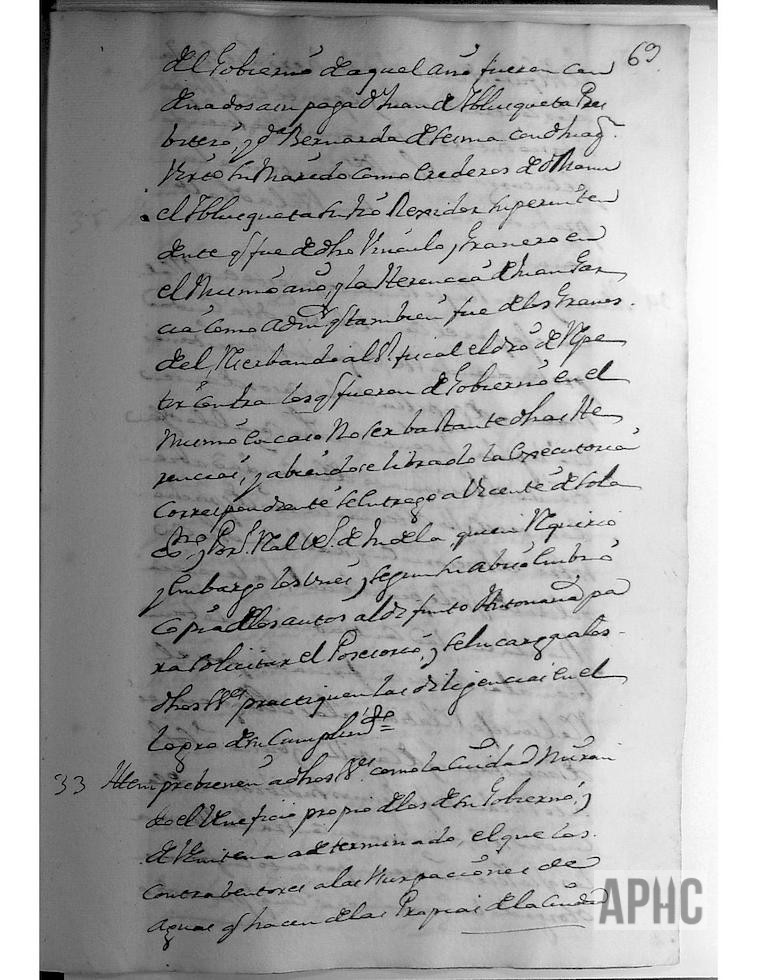 69
del Gobierno de aquel año fueron con
denados a su paga Dn Juan de Ybluequeta Pres
bitero, y Da Bernarda de Lerma con
su Marido como erederos de Dn Manu
el Ybluequeta su tio Rexidor superinten
dente q fue de dho Vinculo y Granero en
el mismo año, y la Herencia de Juan Gar
cia como Admr q tambien fue de los Graneros
del, reserbando al Sr fiscal el dro de Repe
tir contra los q fueron de Gobierno en el
mismo en caso no ser bastante dhas He
rencias, y abiendose librado la Executoria
correspondiente se entrego a Vicente de Sola
Rl de Tudela quien requirio
y embargo los Vnes, y segun su abiso embió
copia de los autos al difunto pa
ra solicitar el Posesorio, y se encarga a los
dhos SSes practiquen las diligencias en el
logro de su Cumplimto =
33 Ittem prebienen a dhos SSes como la Ciudad miran
do el Veneficio propio de los de su Gobierno, y
de Vnitena a determinado, el que los
contrabentores a las Vsurpaciones de
aguas q hacen de las Propias de la Ciudad
APHC